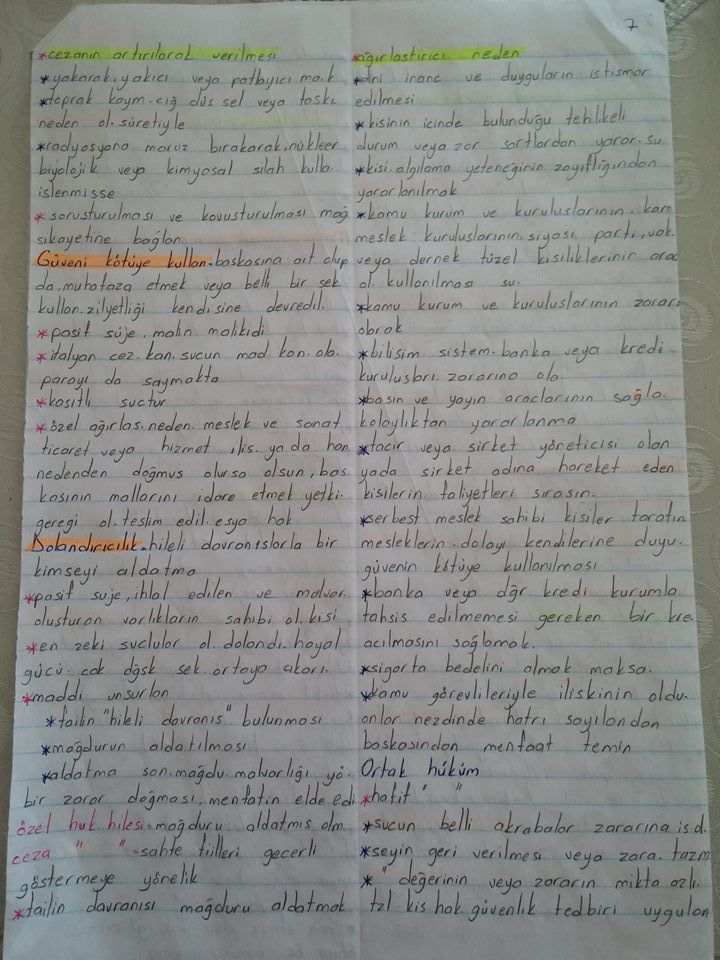 7
*cezanın artırılarak verilmesi
*yakarak, yakıcı veya patlayıcı mad.k
*toprak kaym. çığ düş sel veya taşkı
neden ol. süretiyle
*radyosyona maruz bırakarak, nükleer
biyolojik veya kimyasal silah kulla.
işlenmişse
*soruşturulması ve kovuşturulması mağ
şikayetine bağlan
Güveni kötüye kullan. başkasına ait olup
da, muhafaza etmek veya belli bir şek
kullan. zilyetliği kendisine devredil.
*pasif süje, malın malikidi
*italyan cez. kan. suçun mad kon. ola.
parayı da saymakta
*kasıtlı suçtur
*özel ağırlaş. neden. meslek ve sanat
ticaret veya hizmet iliş. ya da han
nedenden doğmuş olursa olsun, baş
kasının mallarını idare etmek yetki.
gereği ol. teslim edil. eşya hak
Dolandırıcılık. hileli davranışlarla bir
kimseyi aldatma
*pasif suje, ihlal edilen ve malvar.
oluşturan varlıkların sahibi ol. kişi
*en zeki suçlular ol. dolandı. hayal
gücü. çok dğşk şek. ortaya çıkarı.
*maddi unsurları
*failin "hileli davranış" bulunması
*mağdurun aldatılması
*aldatma son. mağdu. malvarlığı yö.
bir zarar doğması, menfatin elde edi
özel huk hilesi. mağduru aldatmış olm.
ceza " " - sahte fiilleri geçerli
göstermeye yönelik
*failin davranışı mağduru aldatmak
*ağırlaştırıcı neden
*dni inanç ve duyguların istismar
edilmesi
*kişinin içinde bulunduğu tehlikeli
durum veya zor şartlardan yarar. su
*kişi algılama yeteneğinin zayıflığından
yararlanılmak
*kamu kurum ve kuruluşlarının, kam
meslek kuruluşlarının, siyasi parti, vak.
veya dernek tüzel kişiliklerinin ara
ol. kullanılması su.
*kamu kurum ve kuruluşlarının zararı
olarak
*bilişim sistem. banka veya kredi
kuruluşları. zararına ola
*basın ve yayın araçlarının sağla.
kolaylıktan yararlanma
*tacir veya şirket yöneticisi olan
yada şirket adına hareket eden
kişilerin faliyetleri sırasın.
*serbest meslek sahibi kişiler tarafın
mesleklerin. dolayı kendilerine duyu.
güvenin kötüye kullanılması
*banka veya dğr kredi kurumla
tahsis edilmemesi gereken bir kre
açılmasını sağlamak.
*sigorta bedelini almak maksa.
*kamu görevlileriyle ilişkinin oldu.
onlar nezdinde hatrı sayılandan
başkasından menfaat temin
Ortak hüküm
*hafif " "
*suçun belli akrabalar zararına iş d.
*şeyin geri verilmesi veya zara. tazm
* " değerinin veya zararın mikta azlı.
tzl kiş hak güvenlik tedbiri uygulan